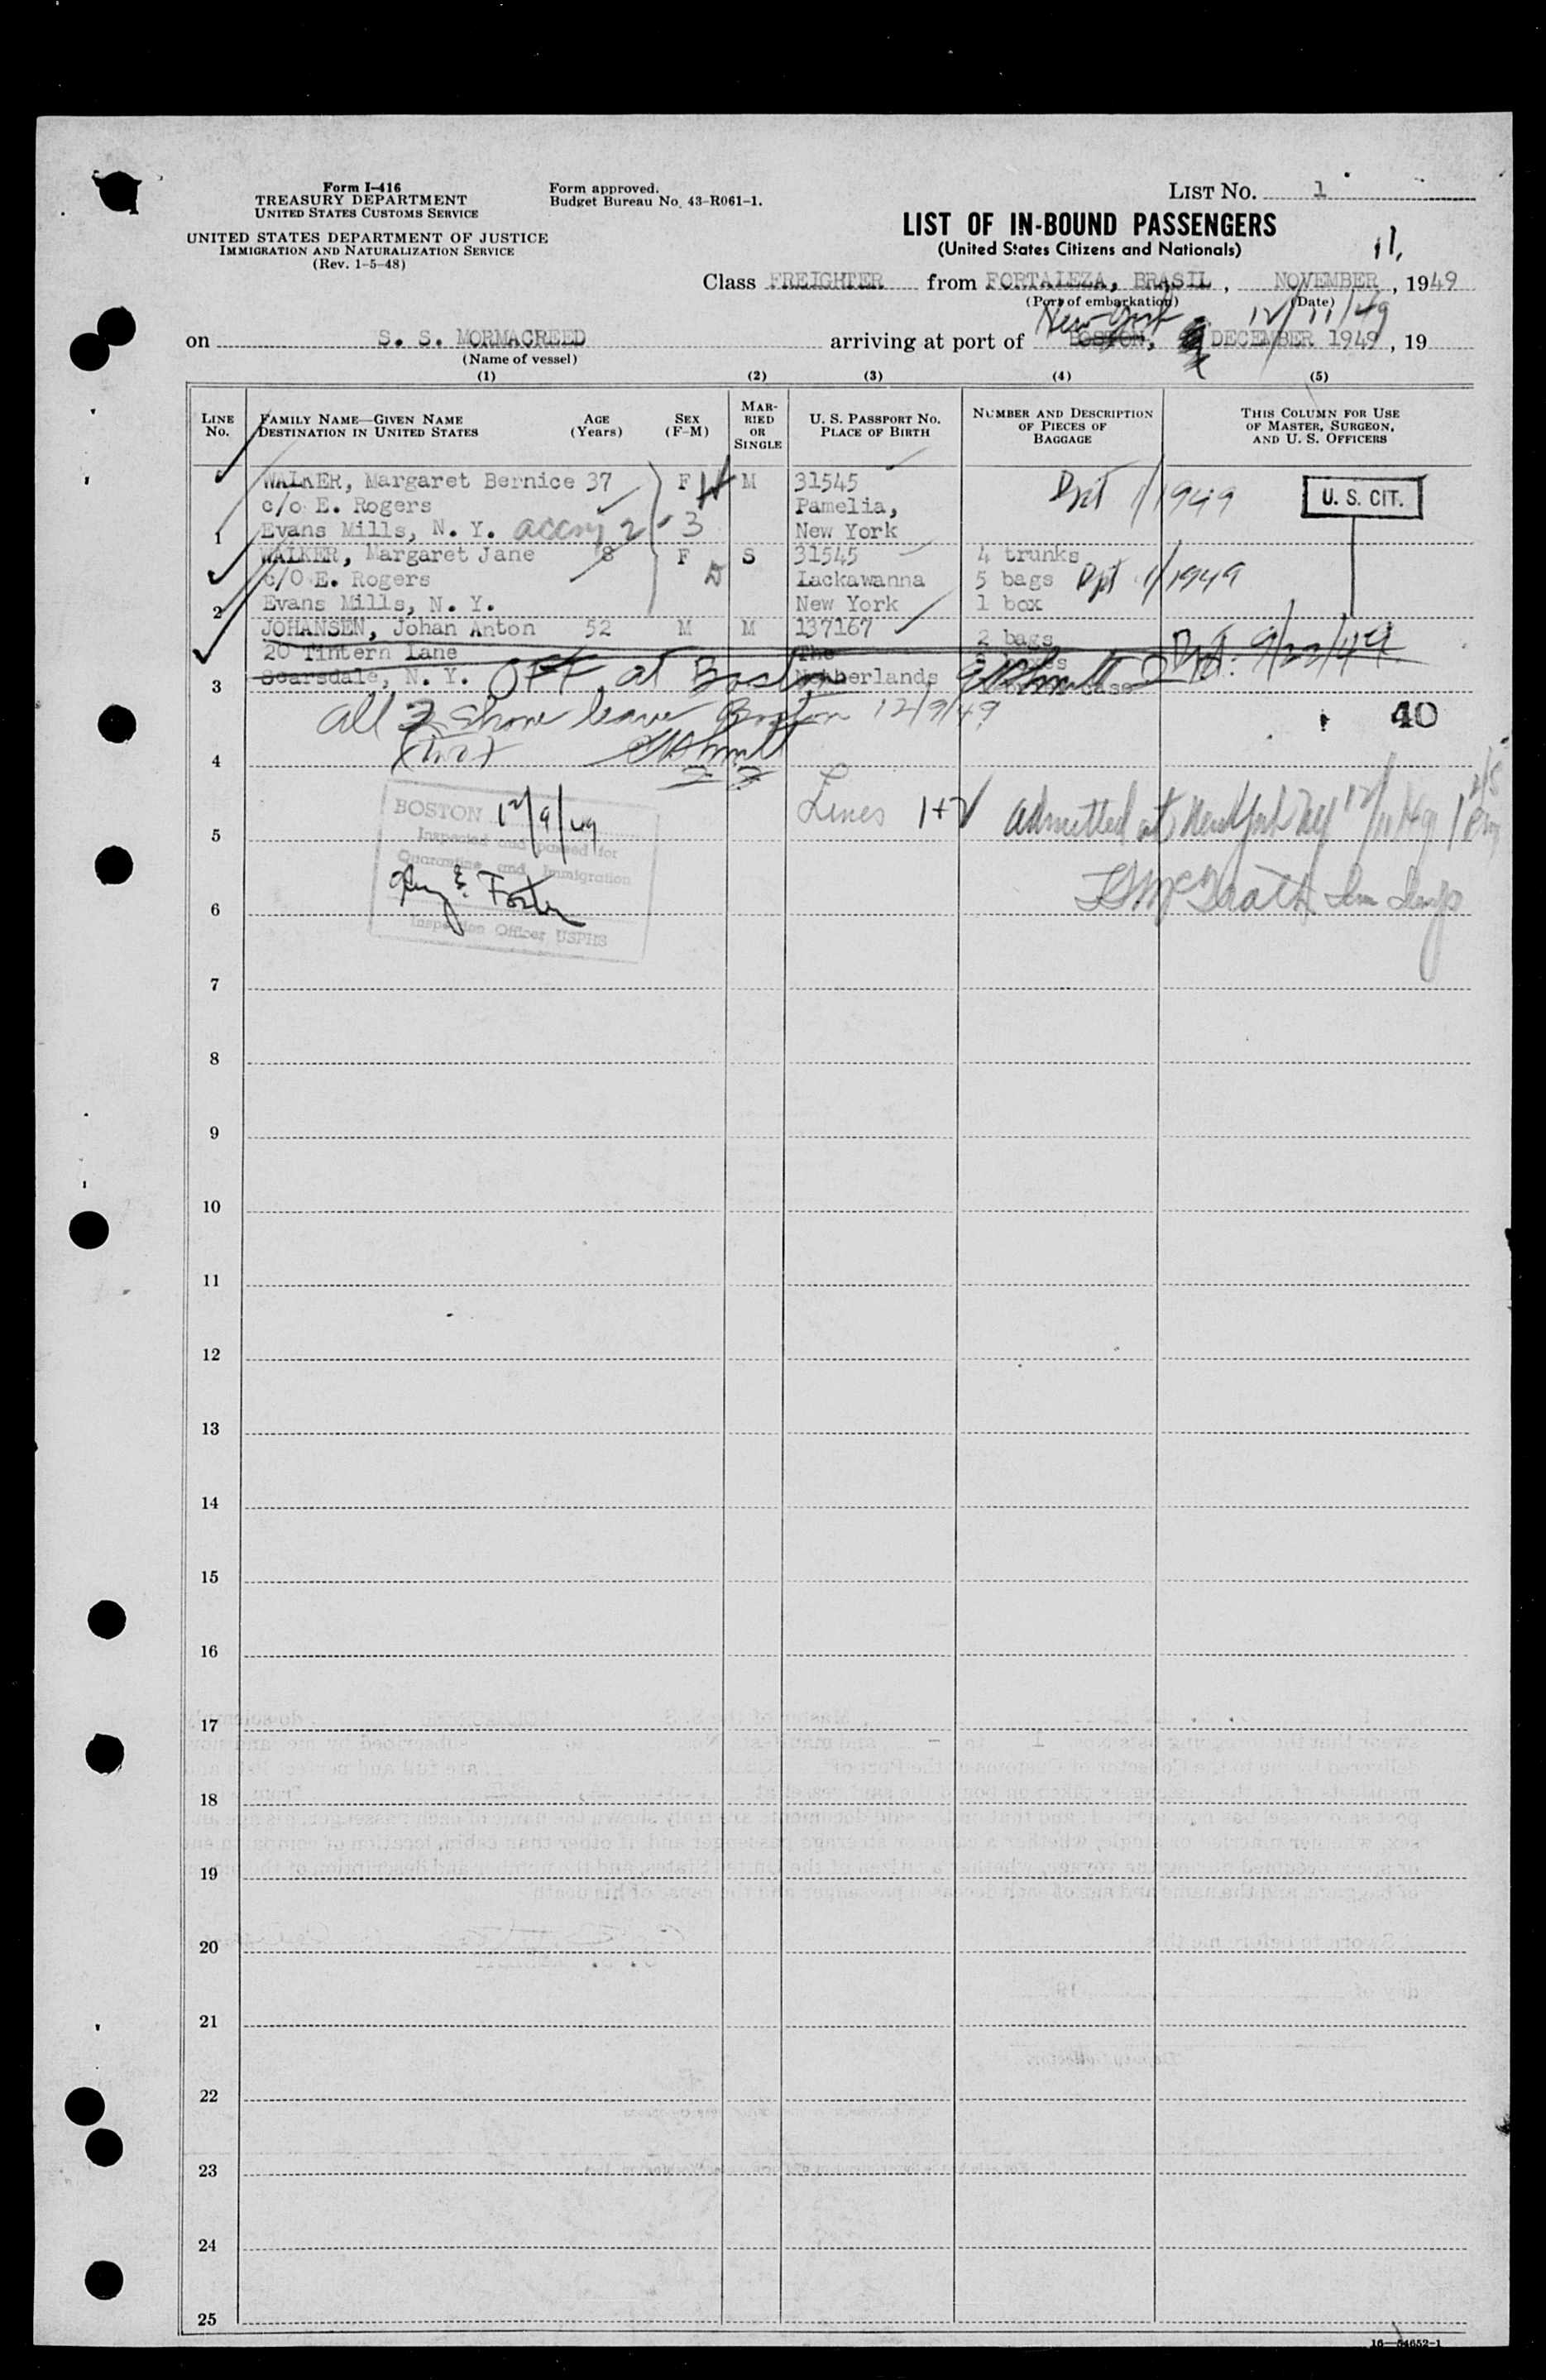 Form I-416
TREASURY DEPARTMENT
UNITED STATES CUSTOMS SERVICE
UNITED STATES DEPARTMENT OF JUSTICE
IMMIGRATION AND NATURALIZATION SERVICE
(Rev. 1-5-48)
Form approved.
Budget Bureau No. 43-R061-1.
LIST NO. 1
LIST OF IN-BOUND PASSENGERS
(United States Citizens and Nationals)
11,
Class FREIGHTER from FORTALEZA, BRASIL, NOVEMBER, 1949
(Port of embarkation) (Date)
New York 12/11/49
on S. S. MORMACREED arriving at port of BOSTON, DECEMBER 1949, 19
(Name of vessel)
(1) (2) (3) (4) (5)
LINE NO.
FAMILY NAME—GIVEN NAME
DESTINATION IN UNITED STATES
AGE (Years)
SEX (F-M)
MARRIED OR SINGLE
U. S. PASSPORT NO.
PLACE OF BIRTH
NUMBER AND DESCRIPTION OF PIECES OF BAGGAGE
THIS COLUMN FOR USE OF MASTER, SURGEON, AND U. S. OFFICERS
WALKER, Margaret Bernice 37 F M 31545
c/o E. Rogers Pamelia,
1 Evans Mills, N. Y. New York
Dpt 1/1949
U. S. CIT.
3
WALKER, Margaret Jane 8 F S 31545 4 trunks
c/O E. Rogers Lackawanna 5 bags Dpt 1/1949
2 Evans Mills, N. Y. New York 1 box
JOHANSEN, Johan Anton 52 M M 137167 2 bags
20 Tintern Lane The
3 Scarsdale, N. Y. Off at Boston Netherlands
Dpt. 9/22/49
all 2 Shore leave Boston 12/9/49
40
4
BOSTON 12/9/49
Inspected and passed for
Quarantine and Immigration
Foster
Inspection Officer USPHS
Lines 1+2 admitted at New York NY 12/11/49
5
6
7
8
9
10
11
12
13
14
15
16
17
18
19
20
21
22
23
24
25
16—54652-1